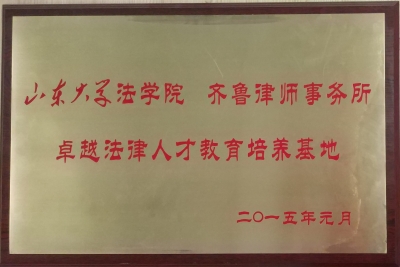 山东大学法学院 齐鲁律师事务所
卓越法律人才教育培养基地
二〇一五年元月